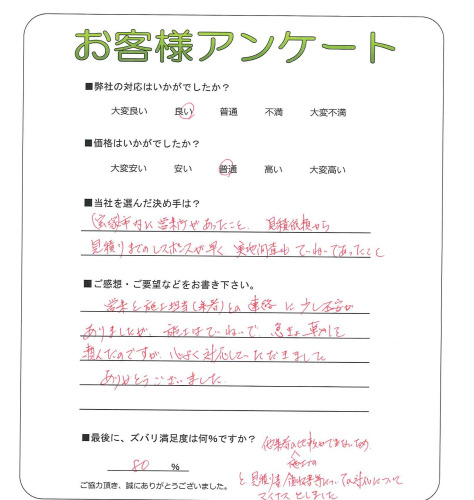 お客様アンケート
■弊社の対応はいかがでしたか?
大変良い 良い 普通 不満 大変不満
■価格はいかがでしたか?
大変安い 安い 普通 高い 大変高い
■当社を選んだ決め手は?
市内に営業所があったこと、見積依頼から
見積りまでのレスポンスが早く 実地調査も ていねいであったこと
■ご感想・ご要望などをお書き下さい。
営業と施工担当(業者)との連絡に少し不安が
ありましたが、施工はていねいで、急きょ
頼んだのですが、心よく対応していただきました
ありがとうございました.
■最後に、ズバリ満足度は何%ですか?
80 %
他業者の比較ができないため
と、見積り書 についての対応について
マイナスとしました
ご協力頂き、誠にありがとうございました。